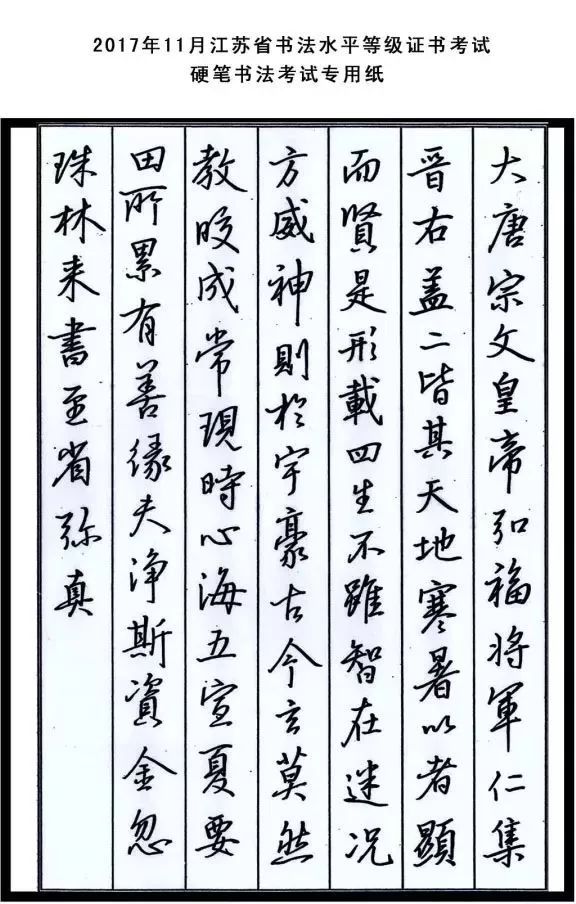 2017年11月江苏省书法水平等级证书考试
硬笔书法考试专用纸
大唐宗文皇帝弘福将軍仁集
晋右盖二皆其天地寒暑以者顯
而賢是形載四生不雖智在迷况
方威神則於宇豪古今言莫然
教晈成常現時心海五宣夏要
田所累有善缘夫浄斯資金忽
珠林来書至省弥真